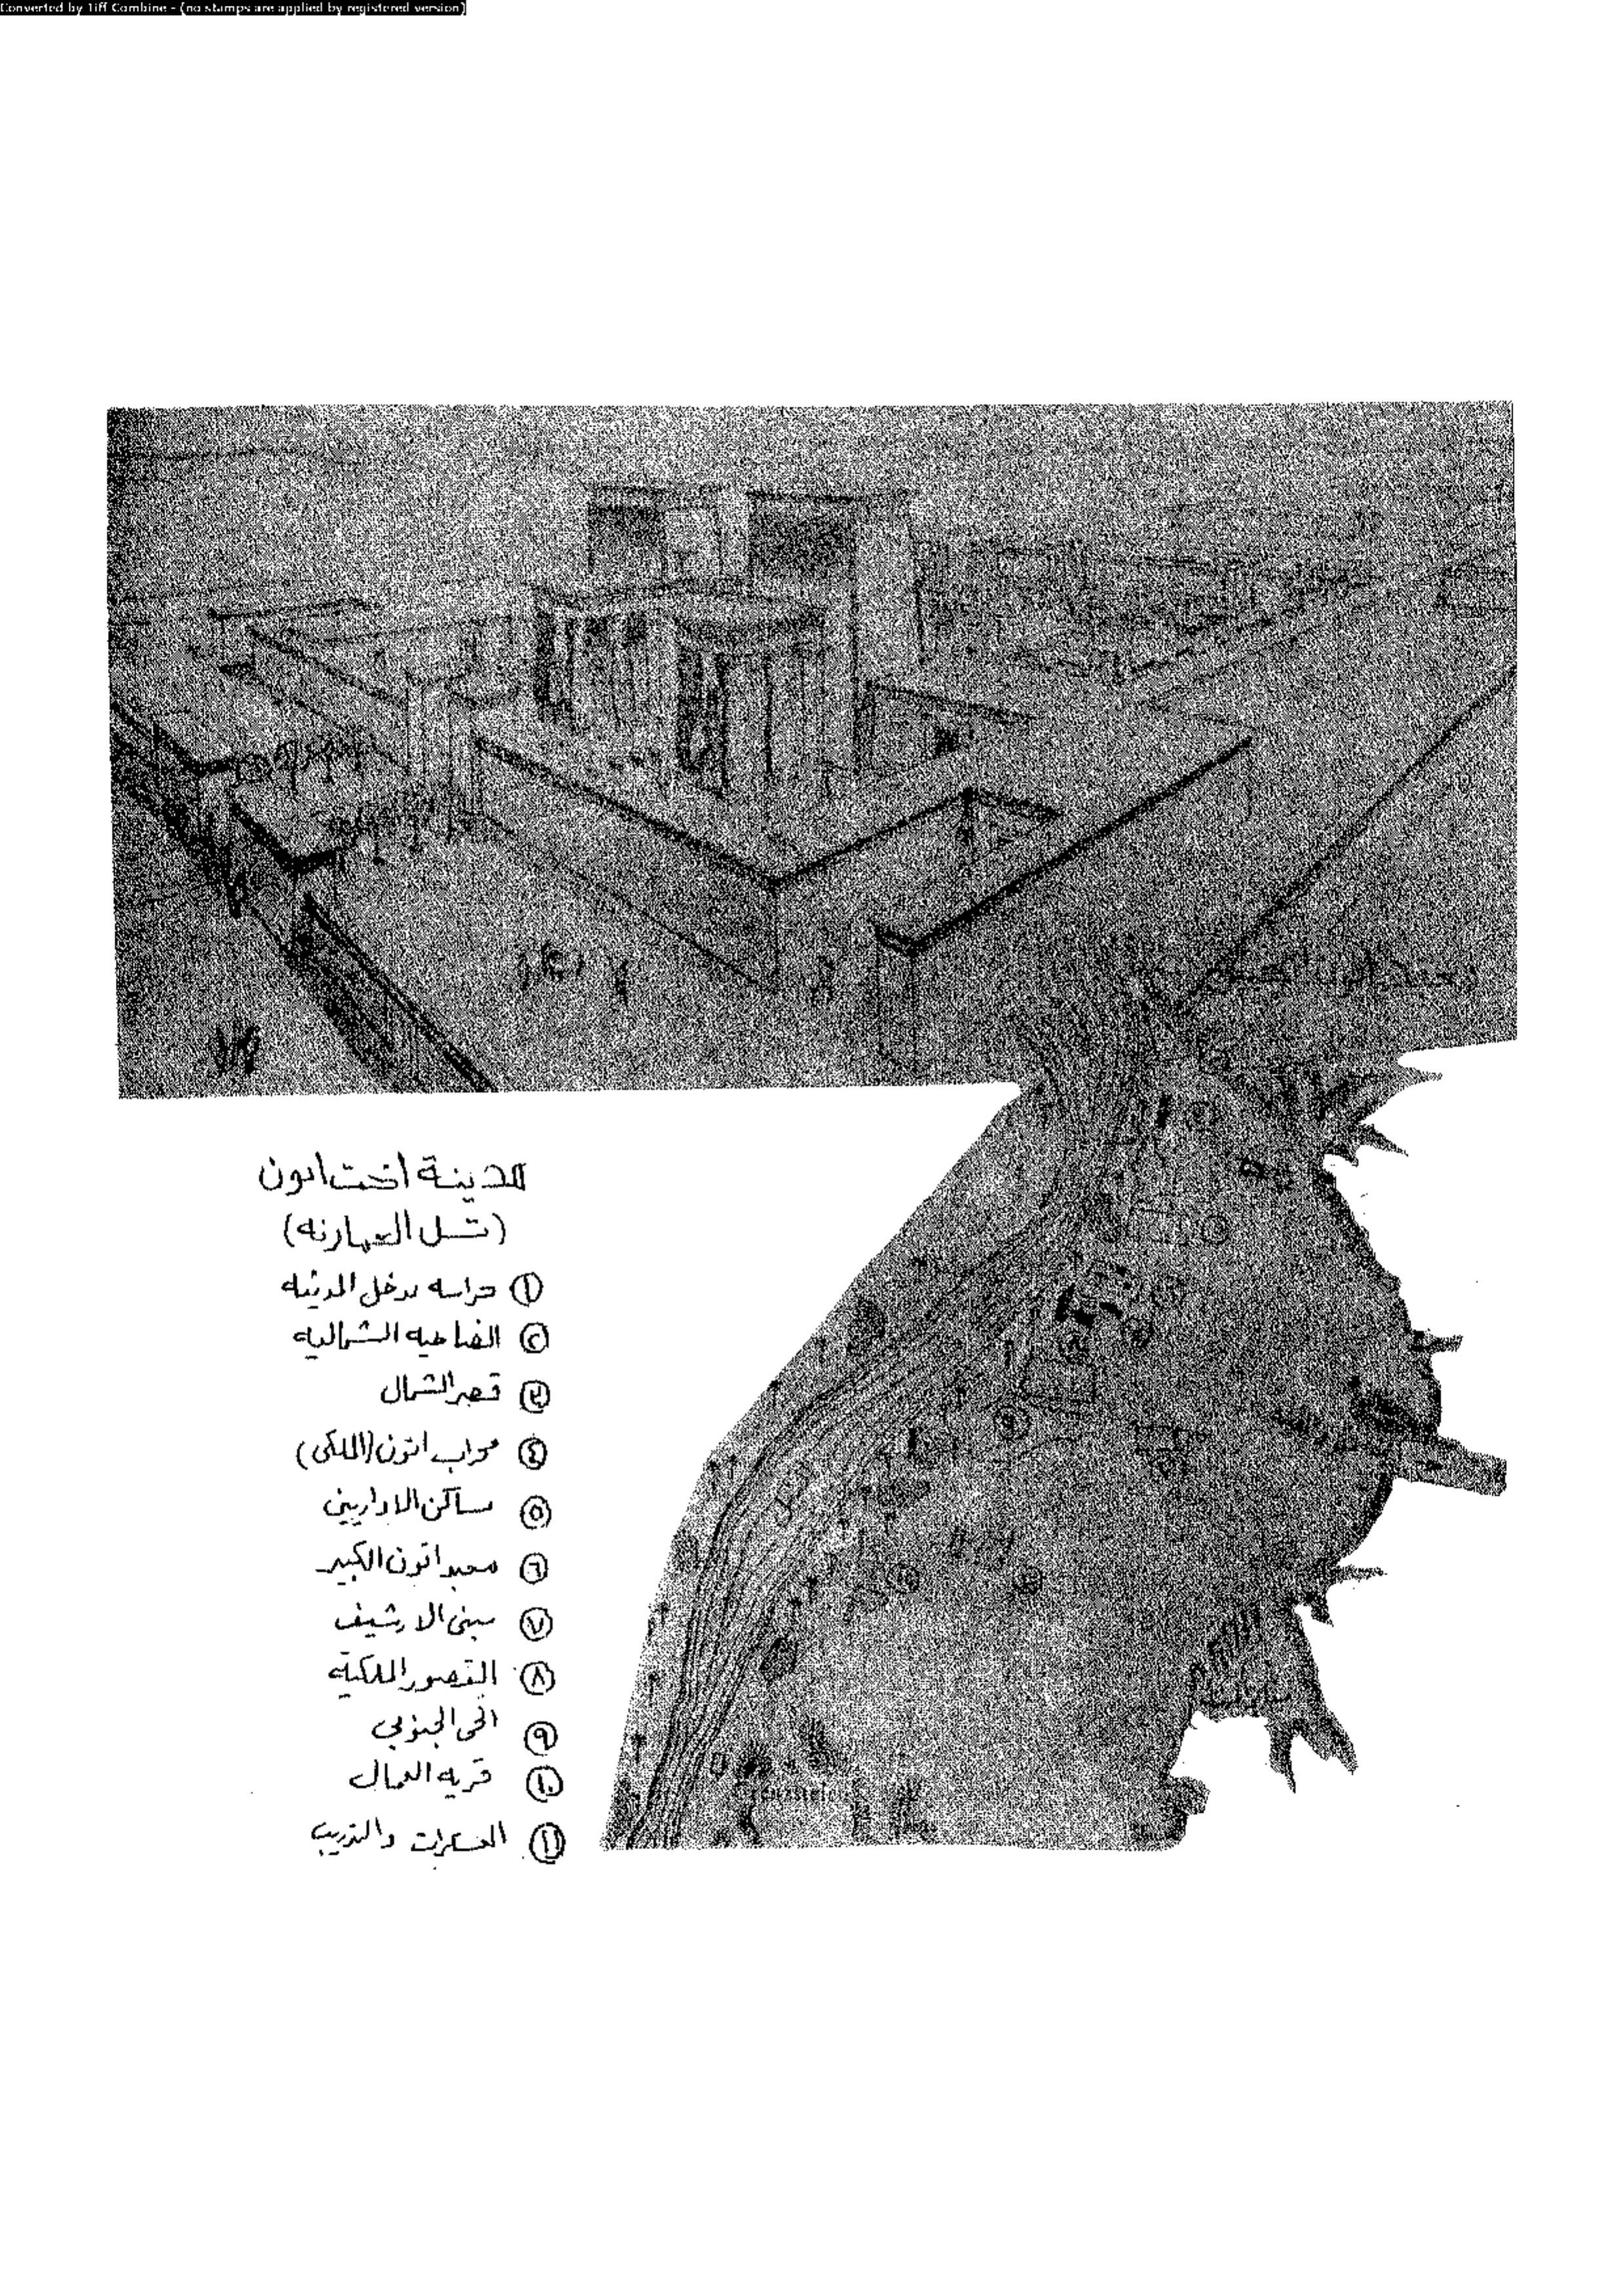 Converted by Tiff Combine - (no stamps are applied by registered version)
المدينة اخت اتون
(تل العمارنه)
١ حراسه مدخل المدينه
٢ الضاحيه الشماليه
٣ قصر الشمال
٤ محراب اتون (الملكى)
٥ مساكن الاداريين
٦ معبد اتون الكبير
٧ مبنى الارشيف
٨ القصور الملكية
٩ الحى الجنوبي
١٠ قريه العمال
١١ المعسكرات والتدريب
Grenzstelen